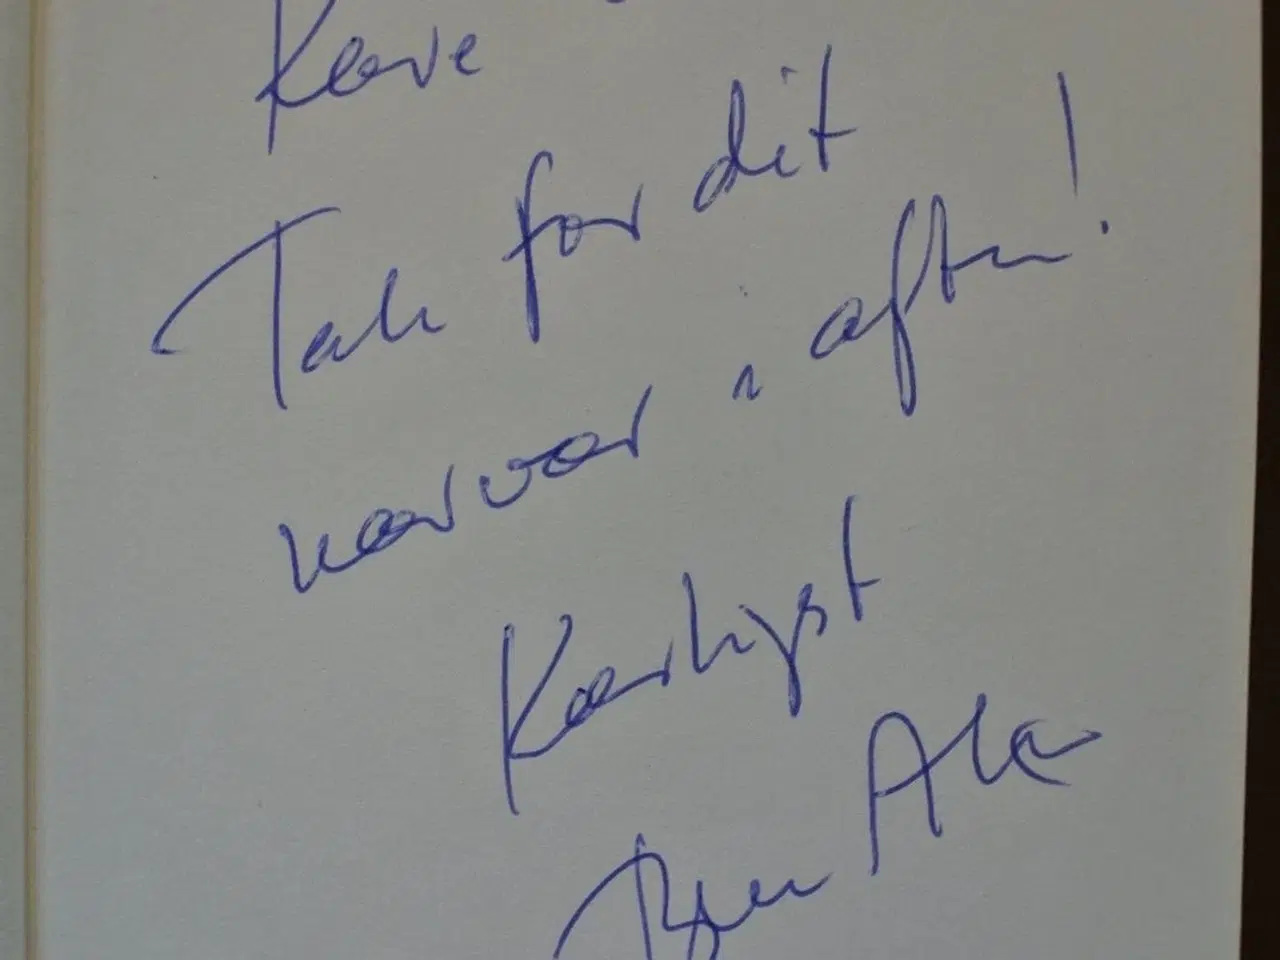 Kære
Tak for dit
nærvær i aften!
Kærligst